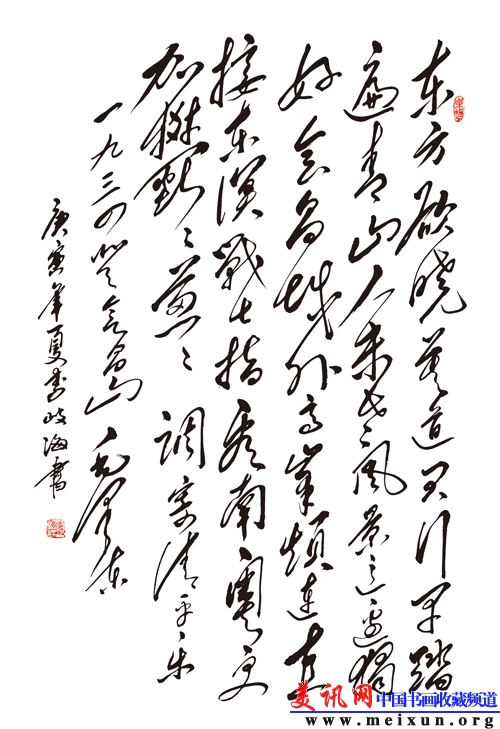 东方欲晓莫道君行早踏
遍青山人未老風景这边独
好会昌城外高峰颠连直
接东溟戰士指看南粤更
加郁々葱々 调寄清平乐
一九三四登会昌山 毛泽东
庚寅年夏李岐海书
美讯网 中国书画收藏频道
www.meixun.org